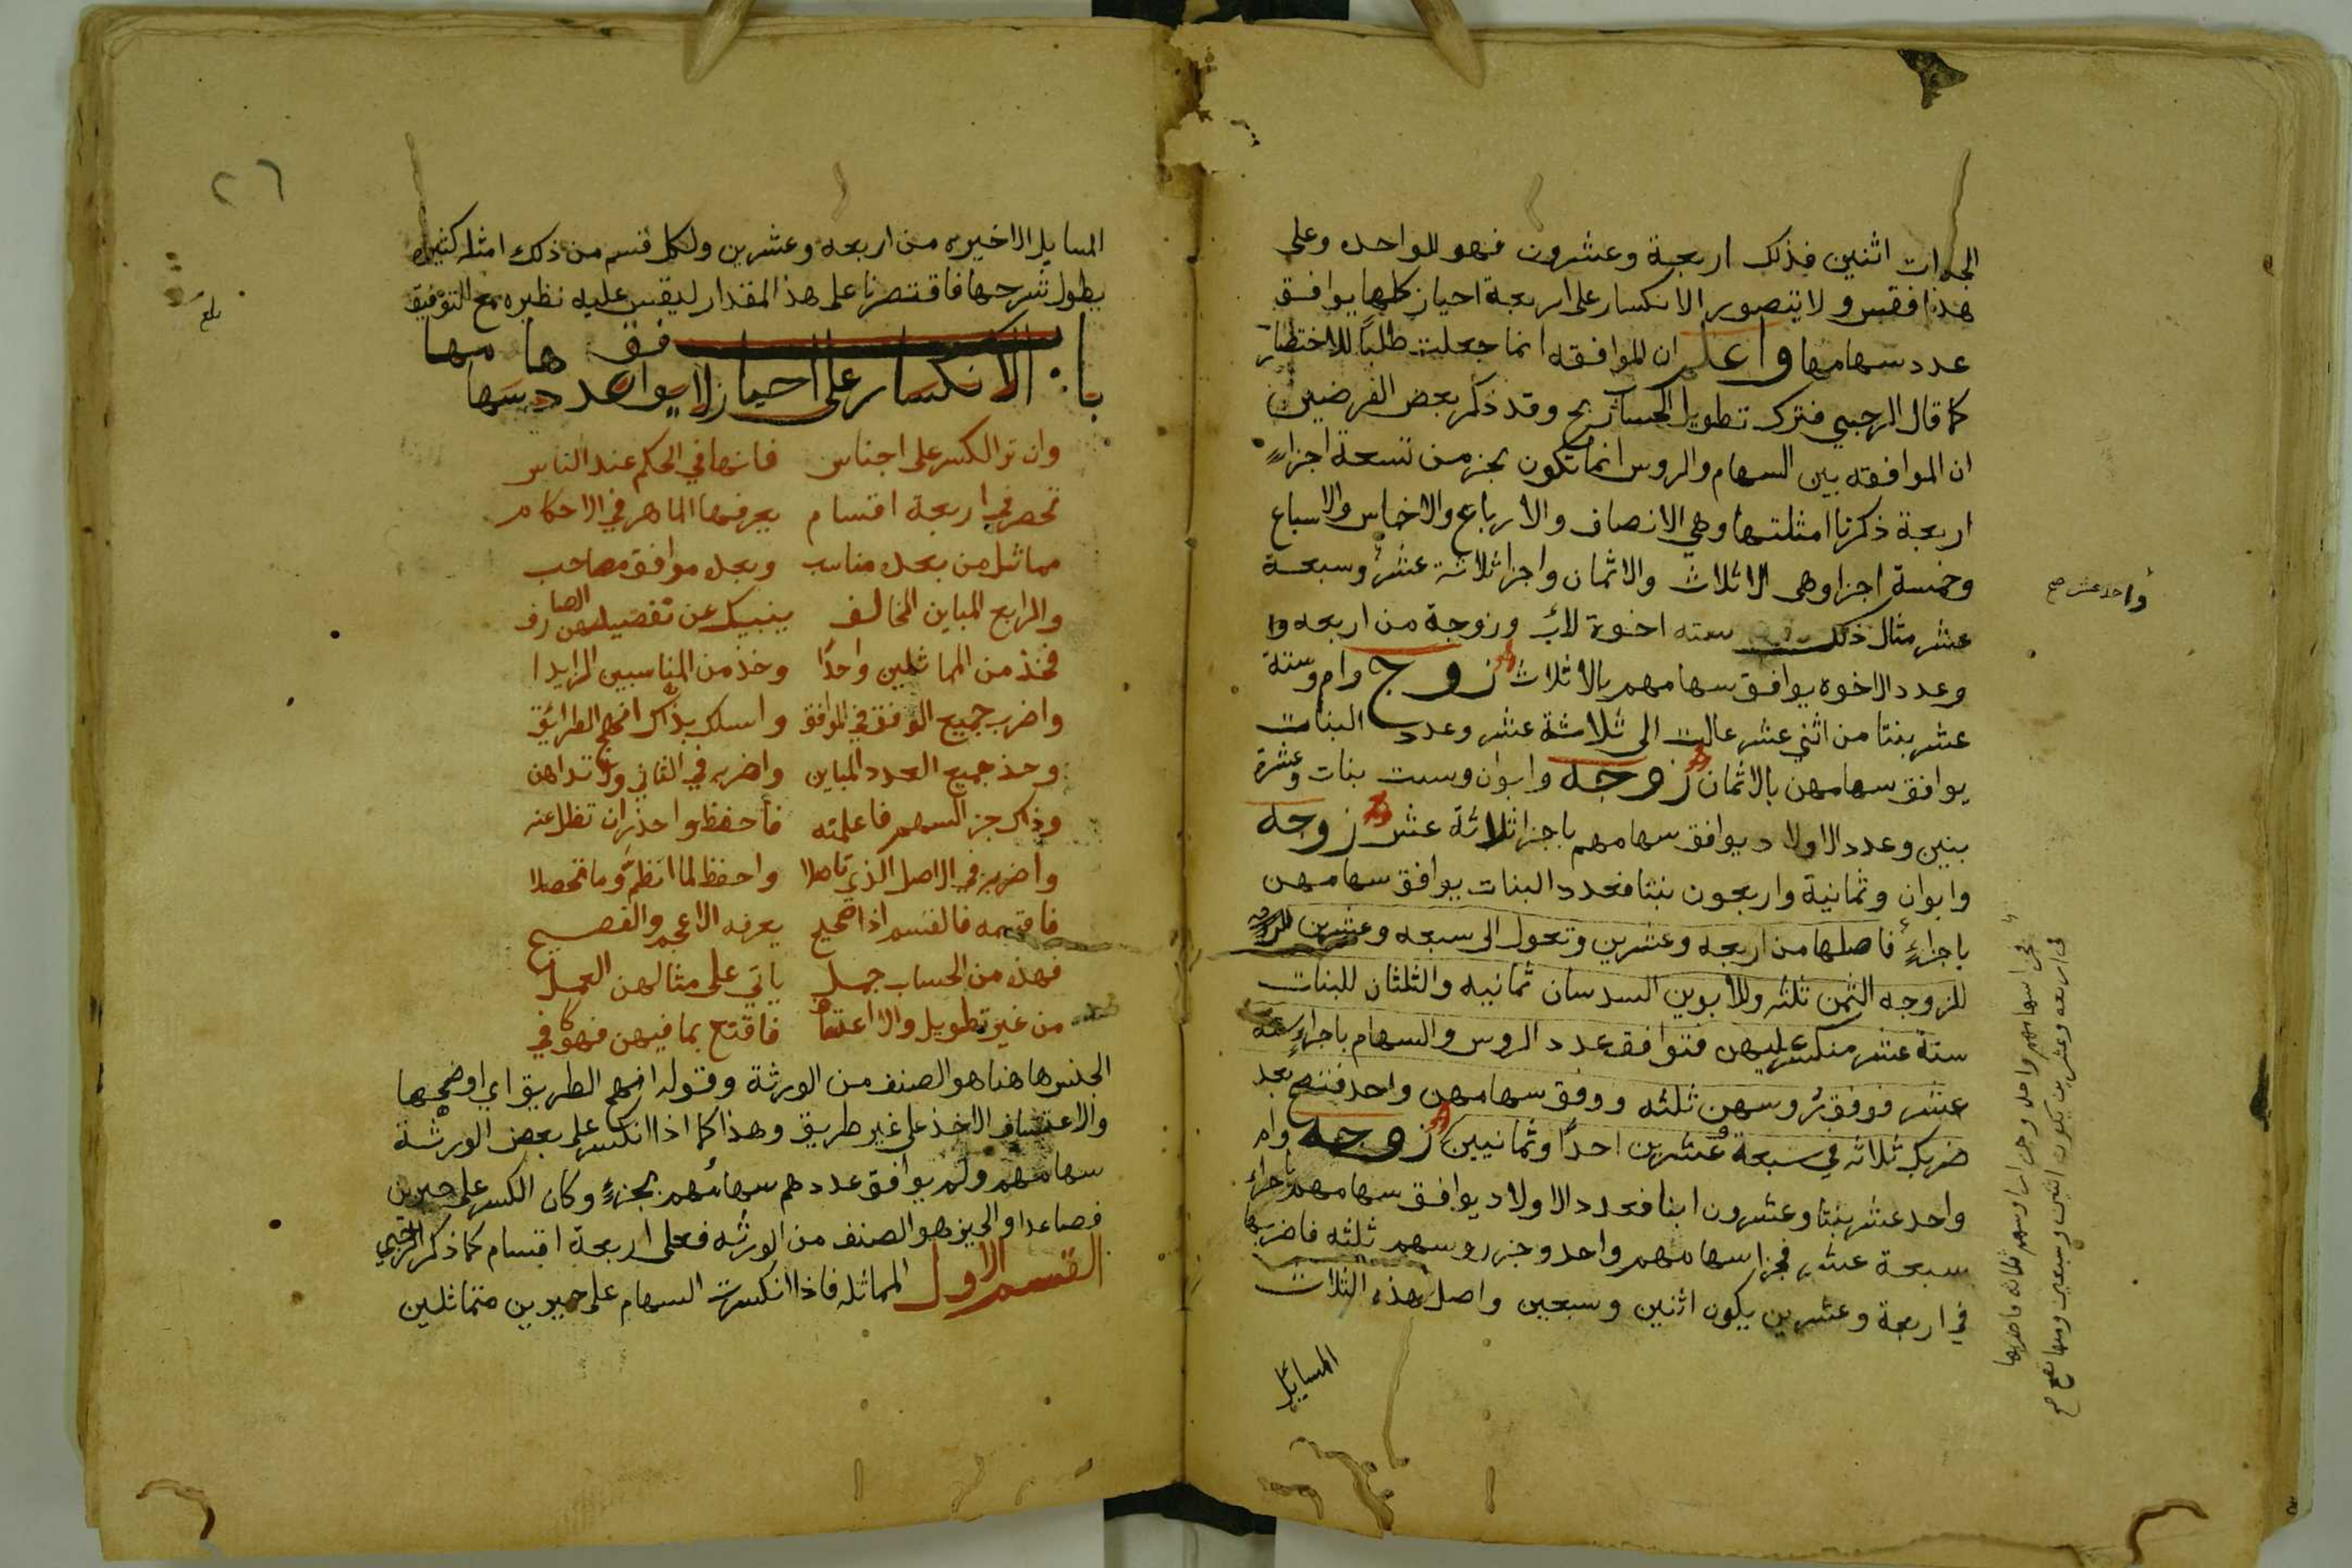 الجدات اثنين فذلك اربعة وعشرون فهو للواحده وعلى
هذا فقس ولا يتصور الانكسار على اربعة احياز كلها يوافق
عدد سهامها واعلم ان الموافقه انما جعلت طلبًا للاختصار
كما قال الرحبي فترك تطويل الحساب ربح وقد ذكر بعض الفرضيين
ان الموافقه بين السهام والروس انما تكون بجز من تسعة اجزاءٍ
اربعة ذكرنا امثلتها وهي الانصاف والارباع والاخماس والاسباع
وخمسة اجزا وهى الاثلاث والاثمان واجزا ثلاثة عشر وسبعة
واحد عشر صح
عشر مثال ذلك ستة اخوة لاب وزوجة من اربعه
وعدد الاخوه يوافق سهامهم بالاثلاث زوج وام وستة
عشر بنتا من اثنى عشر عالت الى ثلاثة عشر وعدد البنات
يوافق سهامهن بالاثمان زوجه وابوان وست بنات وعشرة
بنين وعدد الاولاد يوافق سهامهم باجزا ثلاثة عشر زوجه
وابوان وثمانية واربعون بنتا فعدد البنات يوافق سهامهن
باجزاءٍ فاصلها من اربعه وعشرين وتعول الى سبعه وعشرين
للزوجه الثمن ثلثه وللأبوين السدسان ثمانيه والثلثان للبنات
ستة عشر منكسر عليهن فتوافق عدد الروس والسهام باجزاءٍ ستة
عشر فوفق روسهن ثلثه ووفق سهامهن واحد فتصح بعد
ضربك ثلاثه في سبعة وعشرين احدًا وثمانيين زوجه وام
واحد عشر بنتا وعشرون ابنا فعدد الاولاد يوافق سهامهم باجزاء
سبعة عشر فجزا سهامهم واحد وجزر روسهم ثلثه فاضربها
في اربعة وعشرين يكون اثنين وسبعين واصل هذه الثلاث
المسائل
فجزا سهامهم واحد وجزا روسهم ثلاثه فاضربها
فى اربعه وعشرين يكون اثنين وسبعين ومنها تصح صح
٢٦
المسايل الاخيره من اربعه وعشرين ولكل قسم من ذلك امثله كثيره
يطول شرحها فاقتصرنا على هذ المقدار ليقس عليه نظيره مع التوفيق
بلغ
باب الانكسار على احياز لا يوافق عدد سهامها
وان تر الكسر على اجناس فانها في الحكم عند الناس
تحصر في اربعة اقسام يعرفها الماهر في الاحكام
مماثل من بعده مناسب وبعده موافق مصاحب
والرابع المباين المخالف ينبيك عن تفصيلهن العارف
فخذ من المماثلين واحدًا وخذ من المناسبين الزايدا
واضرب جميع الوفق في الموافق واسلك بذاك انهج الطرائق
وخذ جميع العدد المباين واضربه في الثاني ولا تداهن
وذاك جز السهم فاعلمنه فاحفظ واحذر ان تظل عنه
واضربه في الاصل الذي تاصلا واحفظ لما انظم وما تحصلا
فاقسمه فالقسم اذا صحيح يعرفه الاعجم والفصيح
فهذه من الحساب جمل ياتي على مثالهن العمل
من غير تطويل ولا اعتساف فاقنع بما فيهن فهو كافي
الجنس هاهنا هو الصنف من الورثة وقوله انهج الطريق اي اوضحها
والاعتساف الاخذ على غير طريق وهذا كما اذا انكسر على بعض الورثة
سهامهم ولم يوافق عددهم سهامُهم بجزءٍ وكان الكسر على حيزين
فصاعدا والحيز هو الصنف من الورثه فعلى اربعة اقسام كما ذكر الرحبي
القسم الاول المماثله فاذا انكسرت السهام على حيزين متماثلين